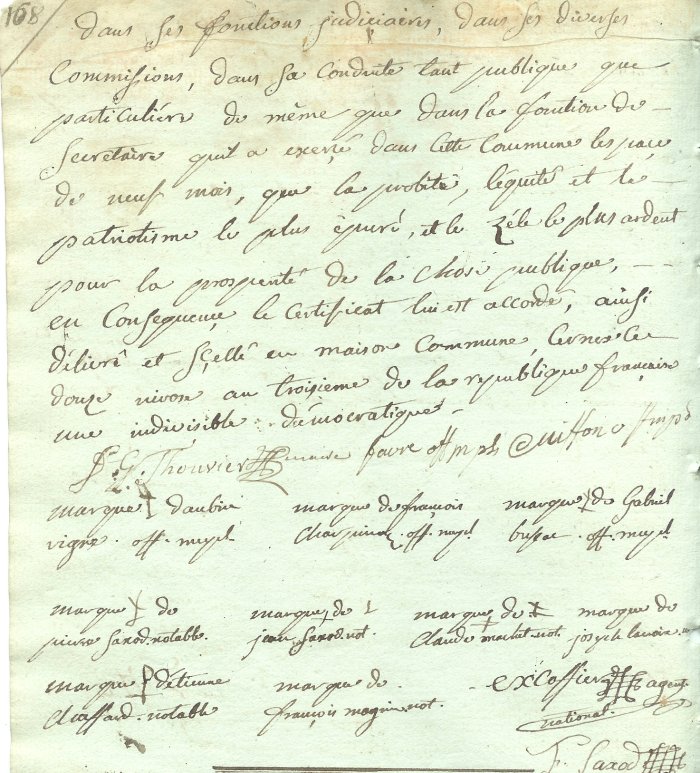 168
dans ses fonctions judiciaires, dans ses diverses
Commissions, dans sa conduite tant publique que
particulière de même que dans la fonction de
Secretaire qu'il a exercé dans cette Commune l'espace
de neuf mois, que la probité, l'équité et le
patriotisme le plus épuré, et le zéle le plus ardent
pour la prosperité de la chose publique,
en Consequence le Certificat lui est accordé, ainsi
délivré et scellé en maison Commune, Cernex le
douze nivose an troisieme de la republique française
une indivisible démocratique
Thouvier maire favre off mpl off mpl
marque d'aubin marque de françois marque de Gabriel
off. mupl. off. mupl. off. mupl.
marque de marque de marque de marque de
pierre Saxod. notable. jean Saxod. not. Claude not. joseph
marque d'étienne marque de Excoffier agent
Chaffard. notable françois magnin. not. national.
F. Saxod